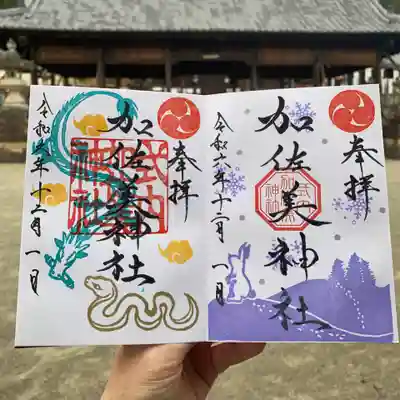 奉拝
加佐美神社
令和六年十二月一日
奉拝
加佐美神社
令和六年十二月一日